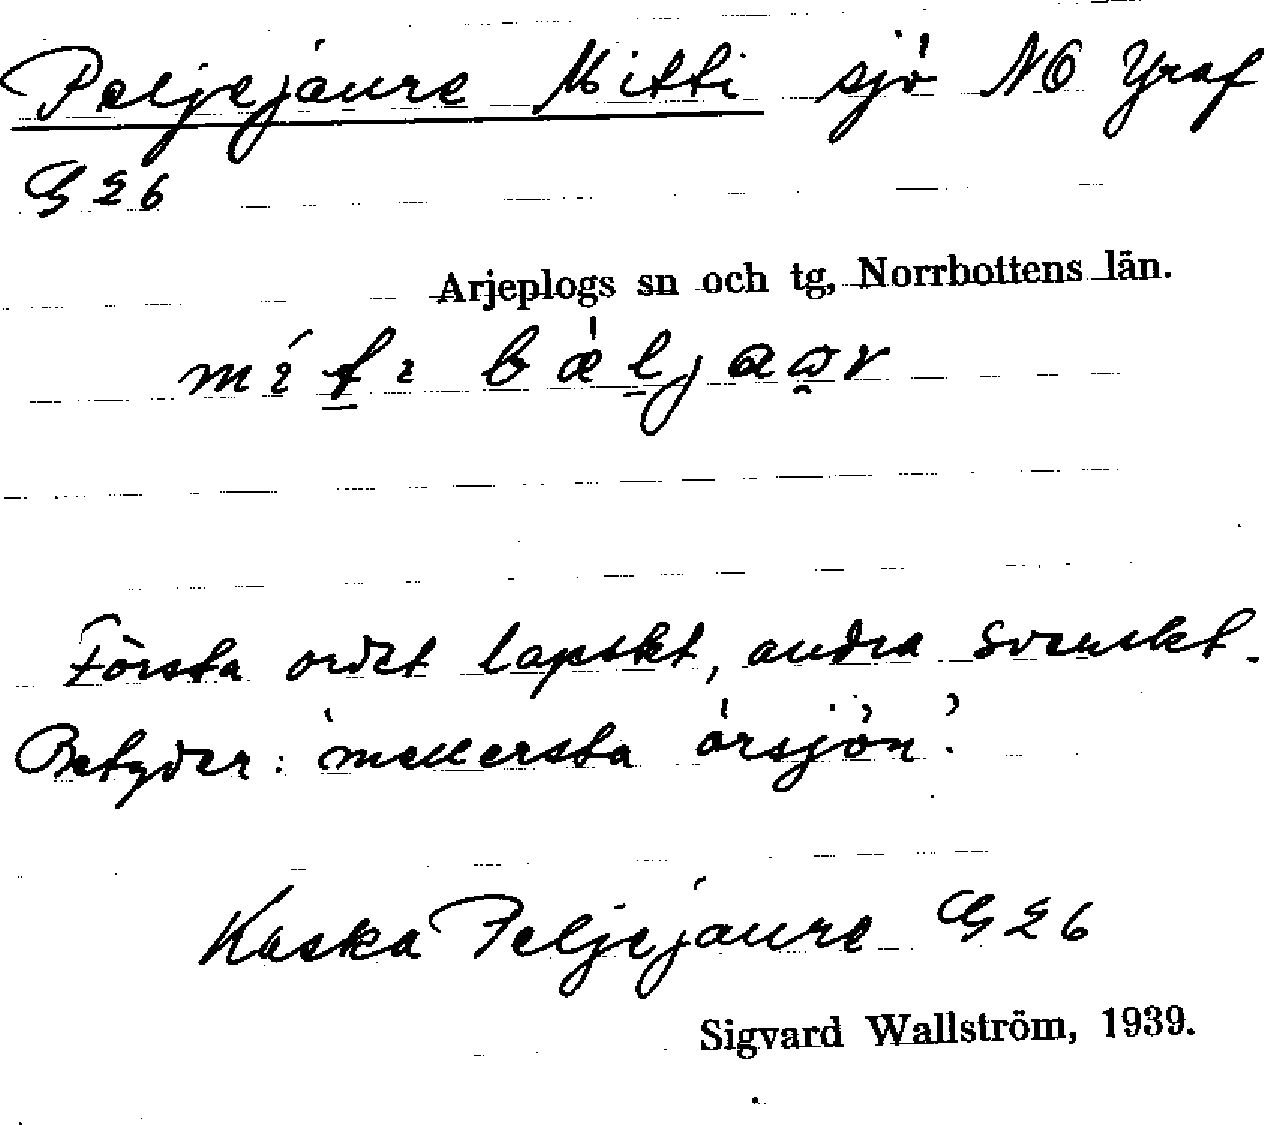 Peljejaure Mitti sjö NO Yraf
G 26
Arjeplogs sn och tg, Norrbottens län.
Första ordet lapskt, andra svenskt.
Betyder: 'mellersta örsjön'.
Kaska Peljejaure G 26
Sigvard Wallström, 1939.